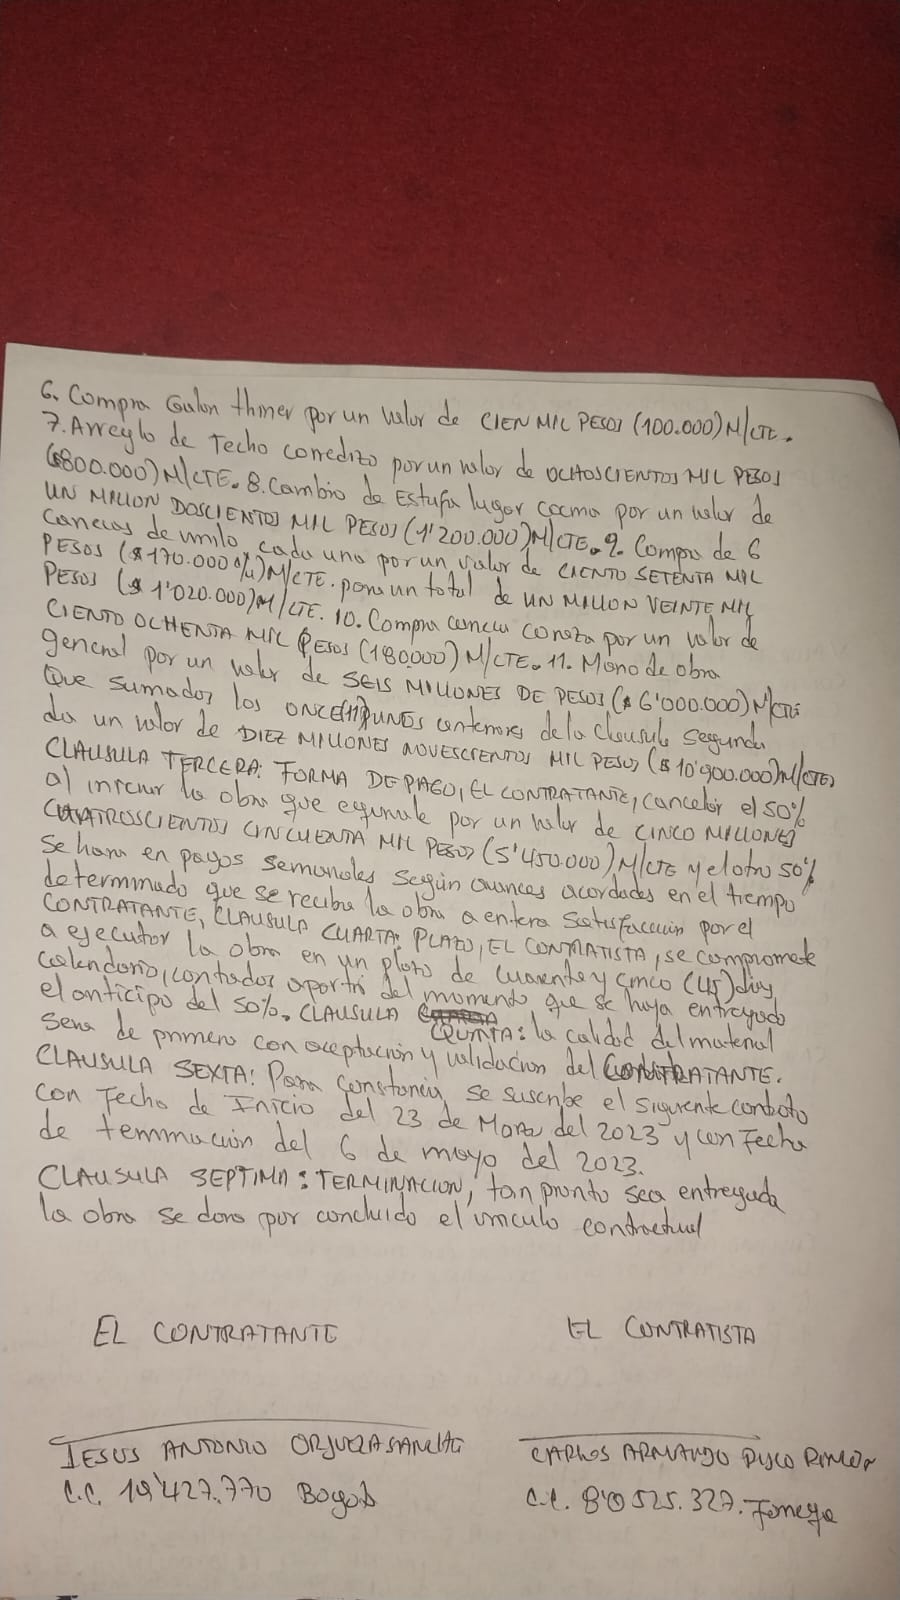 6. Compra Galon thiner por un valor de CIEN MIL PESOS (100.000) M/CTE.
7. Arreglo de Techo corredizo por un valor de OCHOSCIENTOS MIL PESOS
($800.000) M/CTE. 8. Cambio de Estufa lugar cocina por un valor de
UN MILLON DOSCIENTOS MIL PESOS (1'200.000) M/CTE. 9. Compra de 6
canecas de vinilo, cada una por un valor de CIENTO SETENTA MIL
PESOS ($170.000 c/u) M/CTE. para un total de UN MILLON VEINTE MIL
PESOS ($ 1'020.000) M/CTE. 10. Compra caneca coraza por un valor de
CIENTO OCHENTA MIL PESOS (180.000) M/CTE. 11. Mano de obra
general por un valor de SEIS MILLONES DE PESOS ($ 6'000.000) M/CTE
Que sumados los ONCE (11) PUNTOS anteriores de la clausula segunda
da un valor de DIEZ MILLONES NOVESCIENTOS MIL PESOS ($ 10'900.000) M/CTE,
CLAUSULA TERCERA: FORMA DE PAGO, EL CONTRATANTE, cancelar el 50%
al iniciar la obra que equivale por un valor de CINCO MILLONES
CUATROSCIENTOS CINCUENTA MIL PESOS (5'450.000) M/CTE y el otro 50%
se hara en pagos semanales según avances acordados en el tiempo
determinado que se reciba la obra a entera satisfacción por el
CONTRATANTE, CLAUSULA CUARTA: PLAZO, EL CONTRATISTA, se compromete
a ejecutar la obra en un plazo de cuarenta y cinco (45) dias
calendario, contados apartir del momento que se haya entregado
el anticipo del 50%. CLAUSULA QUINTA: la calidad del material
sera de primera con aceptación y validacion del CONTRATANTE.
CLAUSULA SEXTA: Para constancia, se suscribe el siguiente contrato
con Fecha de Inicio del 23 de Marzo del 2023 y con Fecha
de terminación del 6 de mayo del 2023.
CLAUSULA SEPTIMA: TERMINACION, tan pronto sea entregada
la obra se dara por concluido el vinculo contractual
EL CONTRATANTE EL CONTRATISTA
JESUS ANTONIO ORJUELA SANCHEZ CARLOS ARMANDO RINCON
C.C. 19'427.770 Bogotá C.C. 80'525.327.